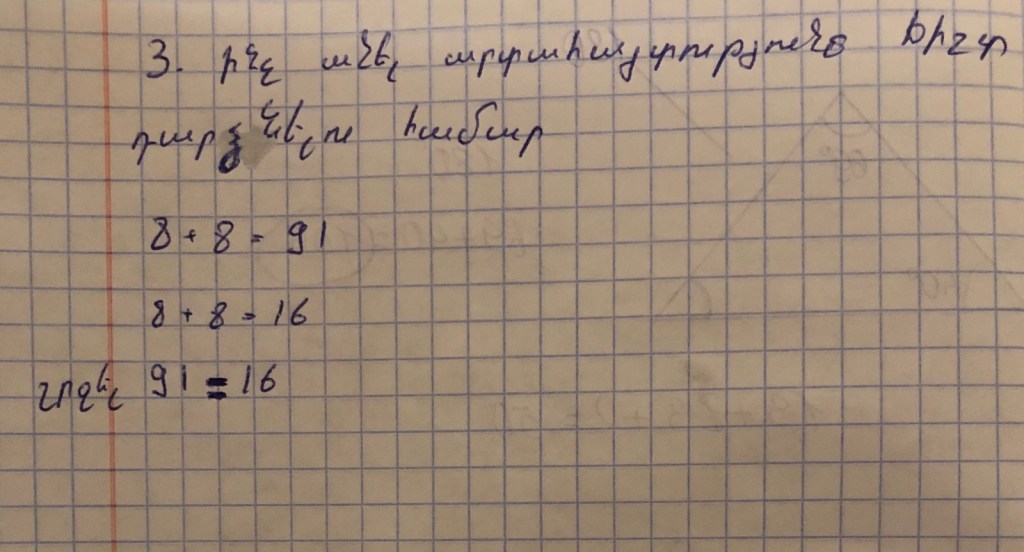 3. ինչ անել արտահայտությունը ճիշտ
դարձնելու համար
8 + 8 = 91
8 + 8 = 16
շրջել 91 = 16